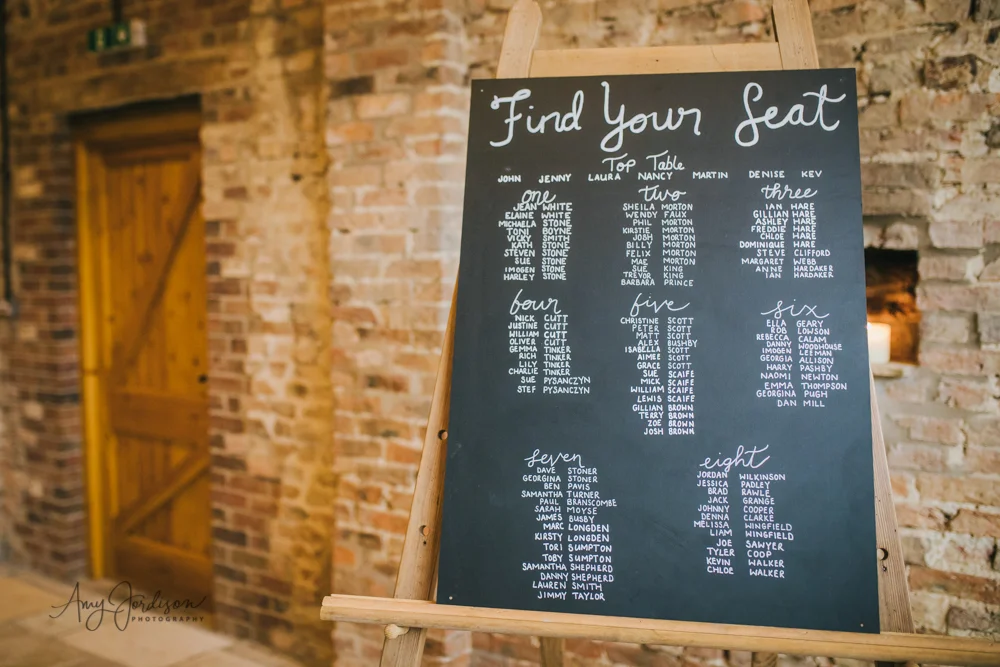 Find Your Seat
Top Table
JOHN JENNY LAURA NANCY MARTIN DENISE KEV
one
JEAN WHITE
ELAINE WHITE
MICHAELA STONE
TONI BOYNE
NICKY SMITH
KATH STONE
STEVEN STONE
SUE STONE
IMOGEN STONE
HARLEY STONE
two
SHEILA MORTON
WENDY FAUX
PHIL MORTON
KIRSTIE MORTON
JOSH MORTON
BILLY MORTON
FELIX MORTON
MAE MORTON
SUE KING
TREVOR KING
BARBARA PRINCE
three
IAN HARE
GILLIAN HARE
ASHLEY HARE
FREDDIE HARE
CHLOE HARE
DOMINIQUE HARE
STEVE CLIFFORD
MARGARET WEBB
ANNE HARDAKER
IAN HARDAKER
four
NICK CUTT
JUSTINE CUTT
WILLIAM CUTT
OLIVER CUTT
GEMMA TINKER
RICH TINKER
LILY TINKER
CHARLIE TINKER
SUE PYSANCZYN
STEF PYSANCZYN
five
CHRISTINE SCOTT
PETER SCOTT
MATT SCOTT
ALEX BUSHBY
ISABELLA SCOTT
AIMEE SCOTT
GRACE SCOTT
SUE SCAIFE
MICK SCAIFE
WILLIAM SCAIFE
LEWIS SCAIFE
GILLIAN BROWN
TERRY BROWN
ZOE BROWN
JOSH BROWN
six
ELLA GEARY
ROB LOWSON
REBECCA CALAM
DANNY WOODHOUSE
IMOGEN LEEMAN
GEORGIA ALLISON
HARRY PASHBY
NAOMI NEWTON
EMMA THOMPSON
GEORGINA PUGH
DAN MILL
seven
DAVE STONER
GEORGINA STONER
BEN PAVIS
SAMANTHA TURNER
PAUL BRANSCOMBE
SARAH MOYSE
JAMES BUSBY
MARC LONGDEN
KIRSTY LONGDEN
TORI SUMPTON
TOBY SUMPTON
SAMANTHA SHEPHERD
DANNY SHEPHERD
LAUREN SMITH
JIMMY TAYLOR
eight
JORDAN WILKINSON
JESSICA PADLEY
BRAD RAWLE
JACK GRANGE
JOHNNY COOPER
DENNA CLARKE
MELISSA WINGFIELD
LIAM WINGFIELD
JOE SAWYER
TYLER COOP
KEVIN WALKER
CHLOE WALKER
Amy Jordison
PHOTOGRAPHY